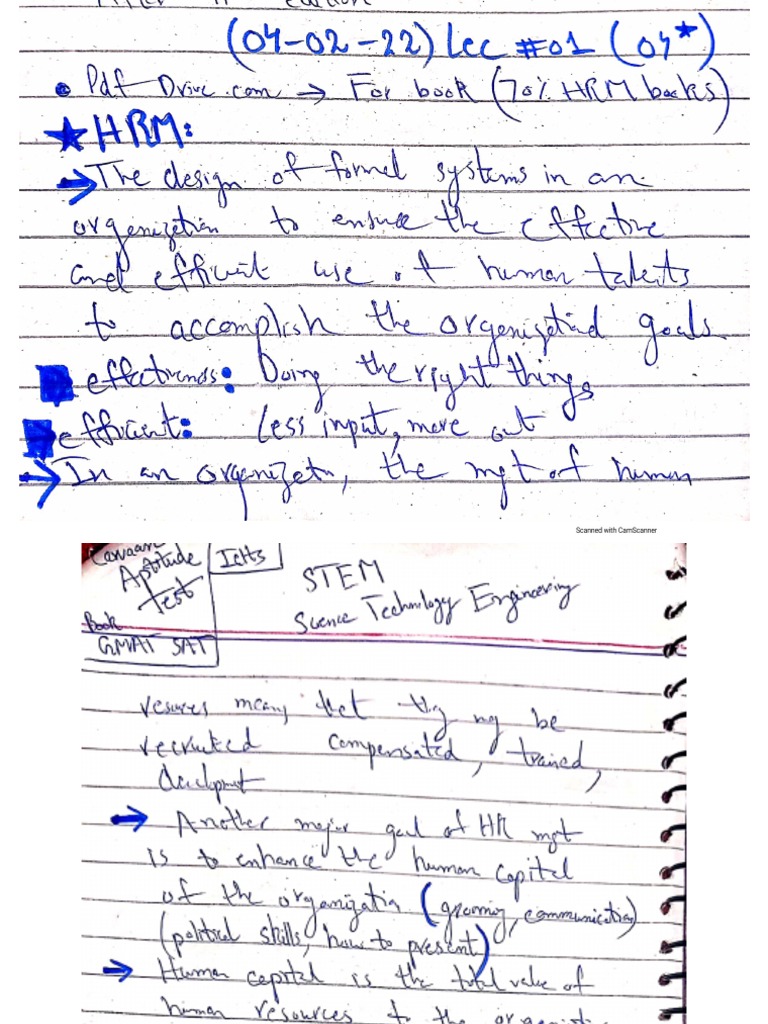 (04-02-22) Lec #01 (04*)
• Pdf Drive.com → For book (70% HRM books)
★ HRM:
→ The design of formal systems in an
organization to ensure the effective
and efficient use of human talents
to accomplish the organizational goals
effectiveness: Doing the right things
efficient: Less input, more out
→ In an organization, the mgt of human
Scanned with CamScanner
Canaan
Aptitude
Test
Ielts
Book
GMAT SAT
STEM
Science Technology Engineering
resources means that they may be
recruited compensated, trained,
development
→ Another major goal of HR mgt
is to enhance the human capital
of the organization (grooming, communication)
(political skills, how to present)
→ Human capital is the total value of
human resources to the